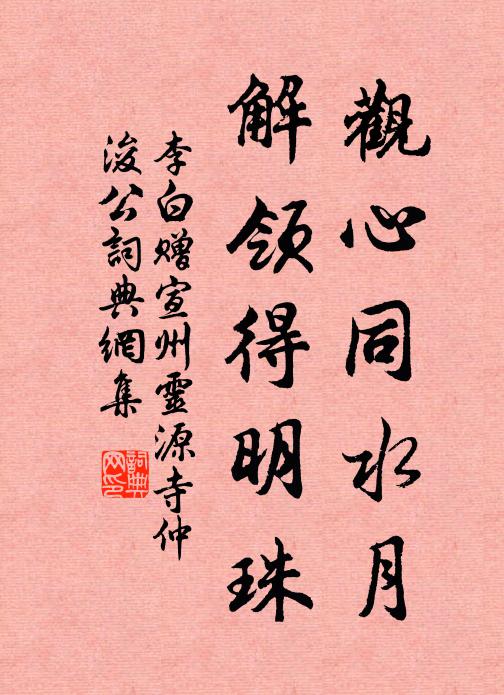 觀心同水月
解領得明珠
李白贈宣州靈源寺仲
浚公詞典網集
詞典網印